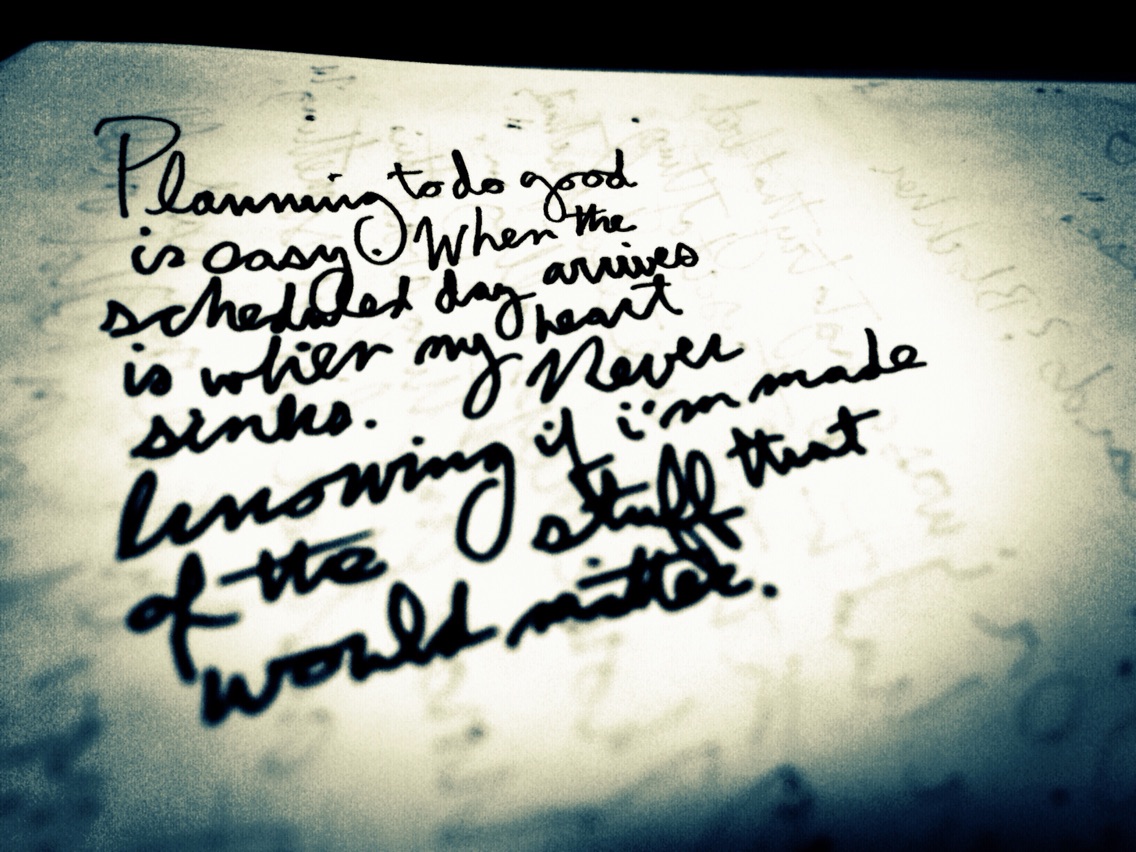 Planning to do good
is easy. When the
scheduled day arrives
is when my heart
sinks. Never
knowing if i'm made
of the stuff that
would matter.